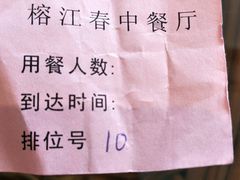 榕江春中餐厅
用餐人数:
到达时间:
排位号 10